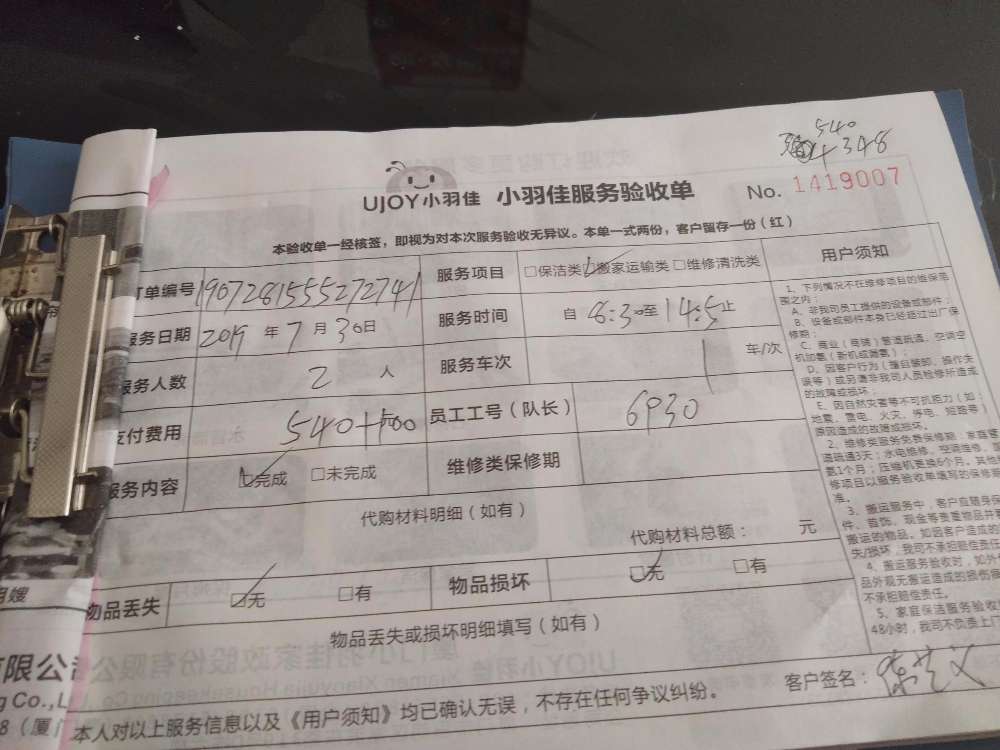 540
4348
UJOY小羽佳 小羽佳服务验收单 No. 1419007
本验收单一经核签，即视为对本次服务验收无异议。本单一式两份，客户留存一份（红）
订单编号 1907281555272741 服务项目 □保洁类 ☑搬家运输类 □维修清洗类
服务日期 2019 年 7 月 30日 服务时间 自 8:30至 14:5止
服务人数 2 人 服务车次 1 车/次
支付费用 540+100 员工工号（队长） 6930
服务内容 ☑完成 □未完成 维修类保修期
代购材料明细（如有）
代购材料总额： 元
物品丢失 ☑无 □有 物品损坏 ☑无 □有
物品丢失或损坏明细填写（如有）
本人对以上服务信息以及《用户须知》均已确认无误，不存在任何争议纠纷。 客户签名：
用户须知
1、下列情况不在维修项目的维保范
围之内：
A、非我司员工提供的设备或部件；
B、设备或部件本身已经超过出厂保
修期；
C、商业（商铺）管道疏通、空调空
机加氨（新机或漏氨）；
D、因客户行为（擅自装卸、操作失
误等）或另请非我司人员检修所造成
的故障或损坏
E、因自然灾害等不可抗拒力（如：
地震、雷电、火灾、停电、短路等）
原因造成的故障或损坏。
2、维修类服务免费保修期：家庭管
道疏通3天；水电维修、空调维修、加
氨1个月；压缩机更换6个月。其他维
修项目以服务验收单填写的保修期
准。
3、搬运服务中，客户应随身保
件、首饰、现金等贵重物品并
搬运的物品。如因客户造成的
失/损坏，我司不承担赔偿责任
4、搬运服务验收时，如外
品外观无搬运造成的损伤
不承担赔偿责任。
5、家庭保洁服务验收
48小时，我司不负责上门
月嫂
有限公
g Co.,L
8（厦门